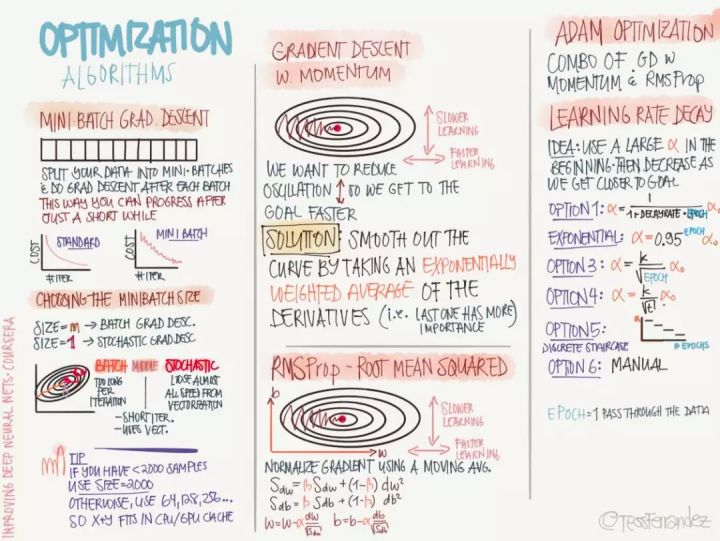 OPTIMIZATION
ALGORITHMS
MINI-BATCH GRAD. DESCENT
SPLIT YOUR DATA INTO MINI-BATCHES
& DO GRAD DESCENT AFTER EACH BATCH
THIS WAY YOU CAN PROGRESS AFTER
JUST A SHORT WHILE
COST
STANDARD
# ITER
COST
MINI BATCH
# ITER
CHOOSING THE MINIBATCH SIZE
SIZE=m → BATCH GRAD DESC.
SIZE=1 → STOCHASTIC GRAD.DESC.
BATCH
TOO LONG
PER
ITERATION
MIDDLE
STOCHASTIC
LOOSE ALMOST
ALL SPEED FROM
VECTORIZATION
-SHORT ITER.
-USES VECT.
TIP
IF YOU HAVE <2000 SAMPLES
USE SIZE=2000
OTHERWISE, USE 64,128,256...
SO X+Y FITS IN CPU/GPU CACHE
IMPROVING DEEP NEURAL NETS · COURSERA
GRADIENT DESCENT
W. MOMENTUM
SLOWER
LEARNING
FASTER
LEARNING
WE WANT TO REDUCE
OSCILLATION ↕ SO WE GET TO THE
GOAL FASTER
SOLUTION: SMOOTH OUT THE
CURVE BY TAKING AN EXPONENTIALLY
WEIGHTED AVERAGE OF THE
DERIVATIVES (i.e. LAST ONE HAS MORE)
IMPORTANCE
RMSProp - ROOT MEAN SQUARED
b
w
SLOWER
LEARNING
FASTER
LEARNING
NORMALIZE GRADIENT USING A MOVING AVG.
Sdw = β Sdw + (1-β) dw²
Sdb = β Sdb + (1-β) db²
w=w-α dw/√Sdw b=b-α db/√Sdb
ADAM OPTIMIZATION
COMBO OF GD W
MOMENTUM & RMSProp
LEARNING RATE DECAY
IDEA: USE A LARGE α IN THE
BEGINNING. THEN DECREASE AS
WE GET CLOSER TO GOAL
OPTION 1: α = 1/(1+DECAYRATE·EPOCH) α₀
EXPONENTIAL: α = 0.95^EPOCH α₀
OPTION 3: α = k/√EPOCH α₀
OPTION 4: α = k/√t α₀
OPTION 5:
DISCRETE STAIRCASE
α
# EPOCHS
OPTION 6: MANUAL
EPOCH = 1 PASS THROUGH THE DATA
@TessFerrandez